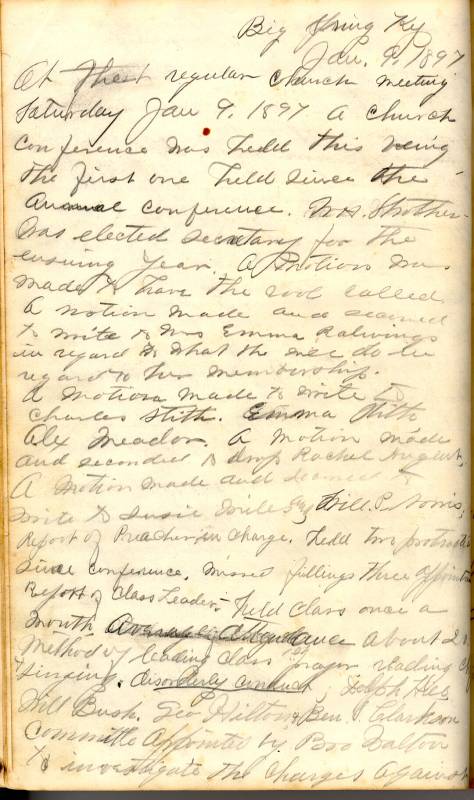 Big Spring Ky
Jan. 9, 1897
At regular church meeting
Saturday Jan 9, 1897 a church
conference was held this being
the first one held since the
Annual conference. Strother
was elected secretary for the
ensuing year. A Motion was
made to have the role called
A motion made and seconed
to write to Mrs Emma
in regard to what the
regard to her membership.
A Motion made to write to
Charles Stith. Emma Stith
Alex Meador. A motion made
and seconded to drop Rachel
A motion made and
write to Susie Will P. Norris,
Report of Preacher in charge. held two
since conference. missed fillings three
Report of Class Leader. held class once a
month. Average attendance about
Method of leading class prayer reading
Singing. disorderly conduct, Dolph
Will Bush. Geo Hilton & Ben. Clarkson
Committe Appointed by Bro Dalton
to investigate the charges against